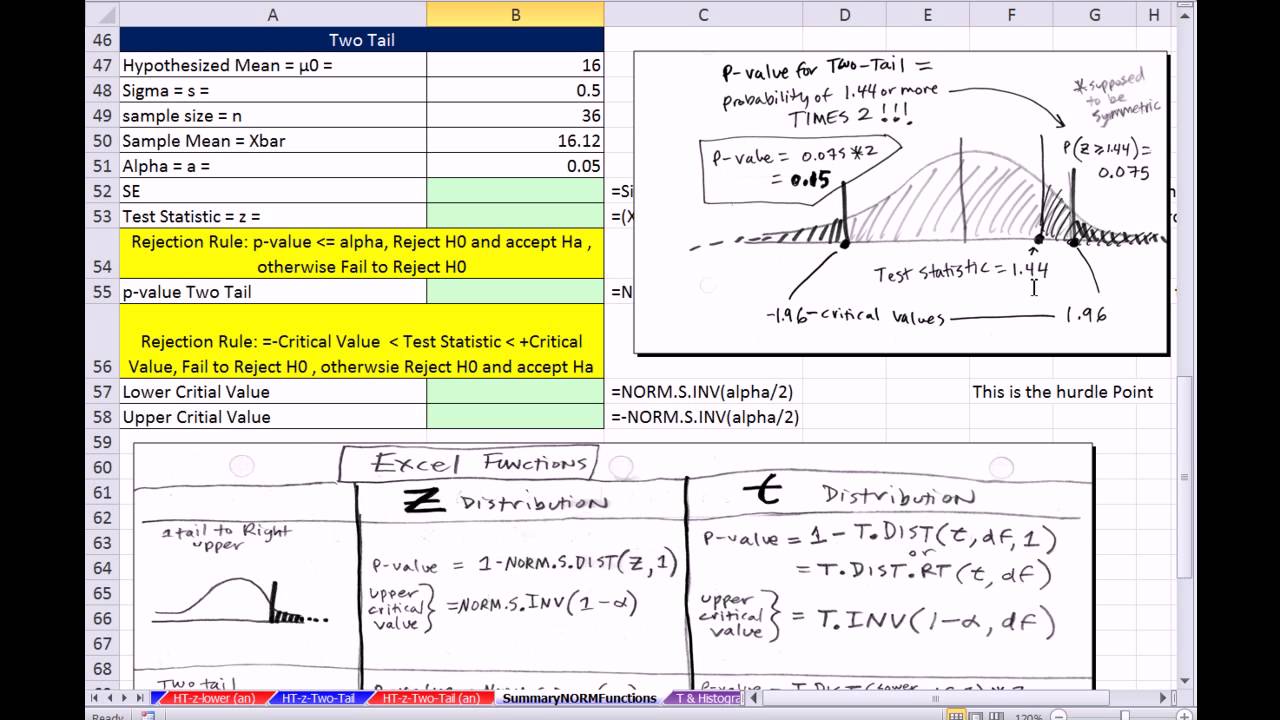 A B C D E F G H
46 Two Tail
47 Hypothesized Mean = µ0 = 16
48 Sigma = s = 0.5
49 sample size = n 36
50 Sample Mean = Xbar 16.12
51 Alpha = a = 0.05
52 SE =Si
53 Test Statistic = z = =(X
Rejection Rule: p-value <= alpha, Reject H0 and accept Ha ,
54 otherwise Fail to Reject H0
55 p-value Two Tail =N
Rejection Rule: =-Critical Value < Test Statistic < +Critical
56 Value, Fail to Reject H0 , otherwsie Reject H0 and accept Ha
57 Lower Critial Value =NORM.S.INV(alpha/2) This is the hurdle Point
58 Upper Critial Value =-NORM.S.INV(alpha/2)
P-value for Two-Tail =
probability of 1.44 or more
TIMES 2 !!!
*supposed
to be
symmetric
P-value = 0.075*2
= 0.15
P(Z≥1.44)=
0.075
Test statistic = 1.44
-1.96-critical values 1.96
59
60 Excel Functions
61 Z Distribution t Distribution
62
63
64
65
66
67
68
1 tail to Right
upper
P-value = 1-NORM.S.DIST(Z,1)
upper
critical
value
=NORM.S.INV(1-α)
P-value = 1-T.DIST(t,df,1)
or
=T.DIST.RT(t,df)
upper
critical
value
= T.INV(1-α,df)
Two tail
HT-z-lower (an) HT-z-Two-Tail HT-z-Two-Tail (an) SummaryNORMFunctions T & Histogra
Ready 120%